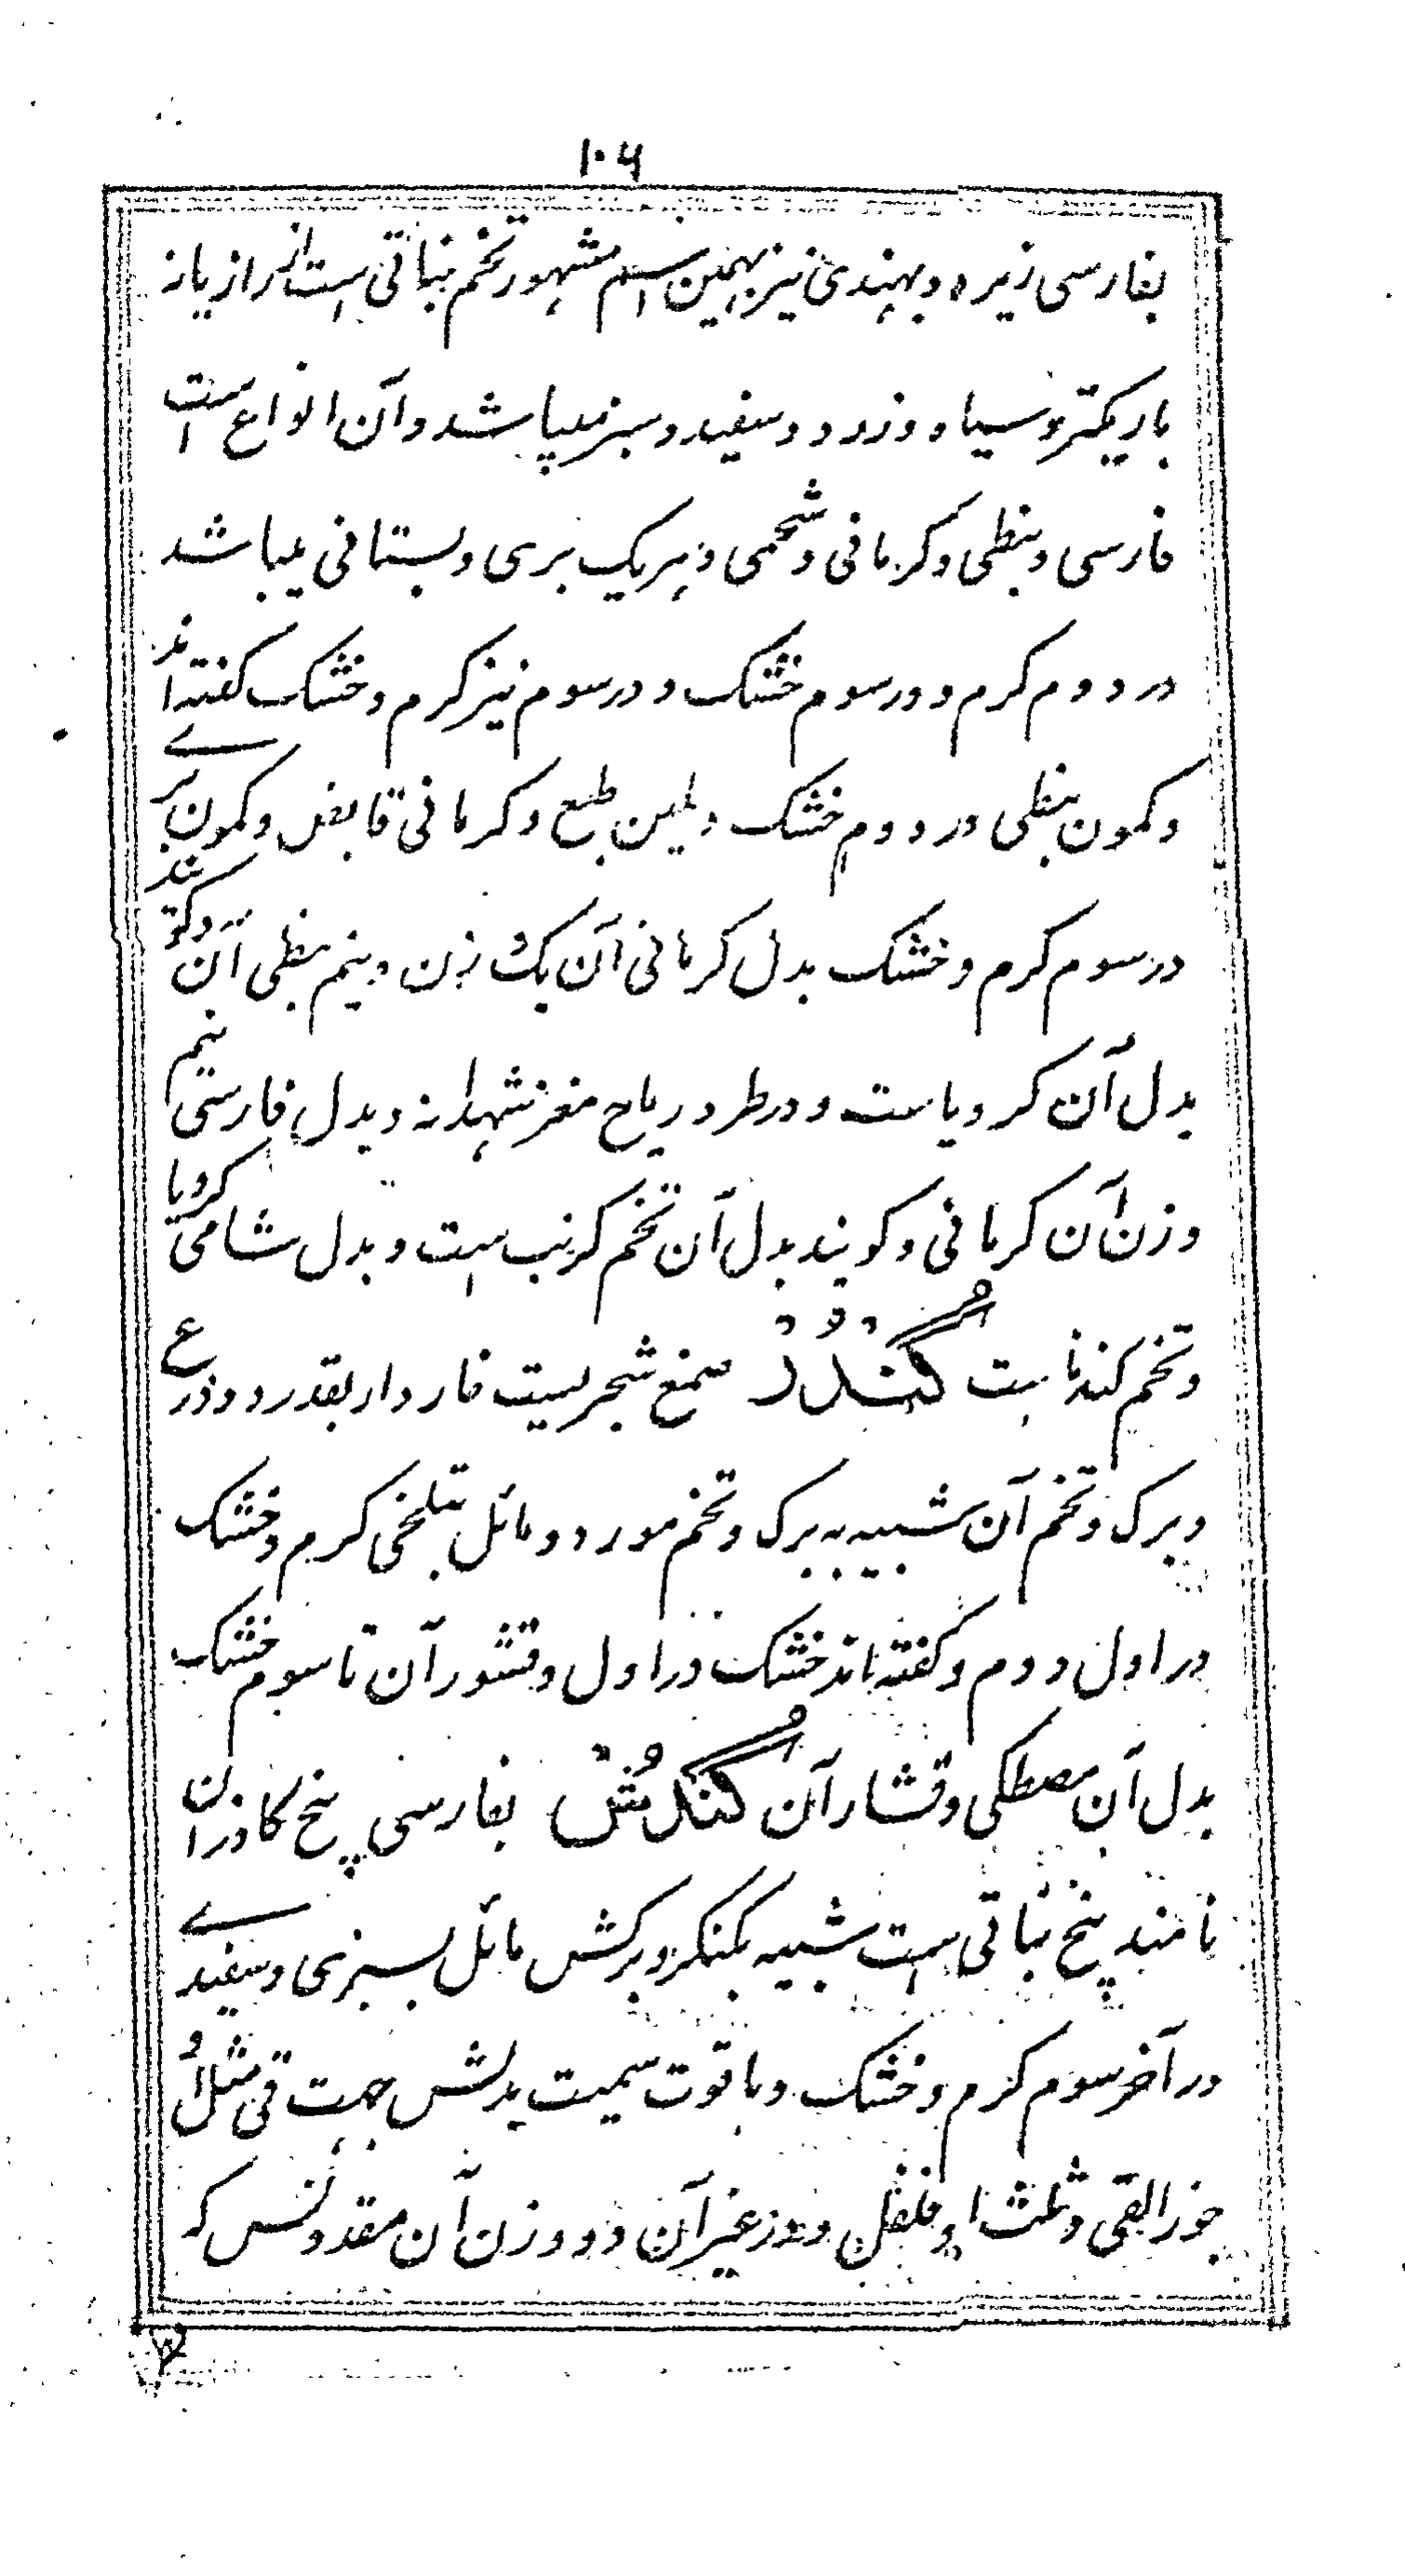 ۱۰۶
بفارسی زیره و بهندی نیز بهمین اسم مشهور تخم نباتی است از رازیانه
باریکتر و سیاه و زرد و سفید و سبز میباشد و آن انواع است
فارسی و نبطی و کرمانی و شحمی و هر یک بری و بستانی میباشد
در دوم کرم و در سوم خشک و در سوم نیز کرم و خشک کفته اند
و کمون نبطی در دوم خشک و ملین طبع و کرمانی قابض و کمون بری
در سوم کرم و خشک بدل کرمانی آن یک وزن و نیم نبطی آن و کویند
بدل آن کرویاست و در طرد ریاح مغز شهدانه و بدل فارسی نیم
وزن آن کرمانی و کویند بدل آن تخم کرنب است و بدل شامی کرویا
و تخم کندناست کُنْدُر صمغ شجریست خاردار بقدر دو ذرع
و برک و تخم آن شبیه به برک و تخم مورد و مائل بتلخی کرم و خشک
در اول دوم و کفته اند خشک در اول و قشور آن تا سوم خشک
بدل آن مصطکی و قشار آن کُنْدُش بفارسی بیخ کاذران
نامند بیخ نباتی است شبیه بکنکر و برکش مائل بسبزی و سفیدی
در آخر سوم کرم و خشک و با قوت سمیت بدلش جهت قی مثل او
جوز القی و ثلث او فلفل و در غیر آن دو وزن آن مقدونس که